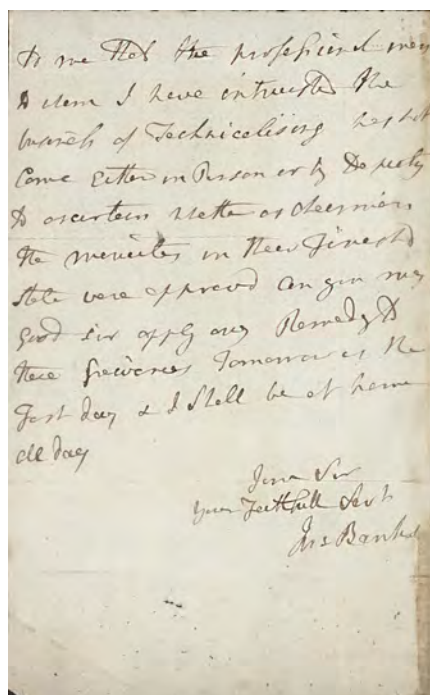 to me that the professional men
to whom I have intrusted the
business of Technicalising has not
Come Either in Person or by Deputy
to ascertain whether or
the minutes in their Finishd
state were approvd Can you my
good sir apply any Remedy to
these Grievances Tomorrow is the
Last day & I Shall be at home
all day
Your Faithfull Servt
Jos Banks